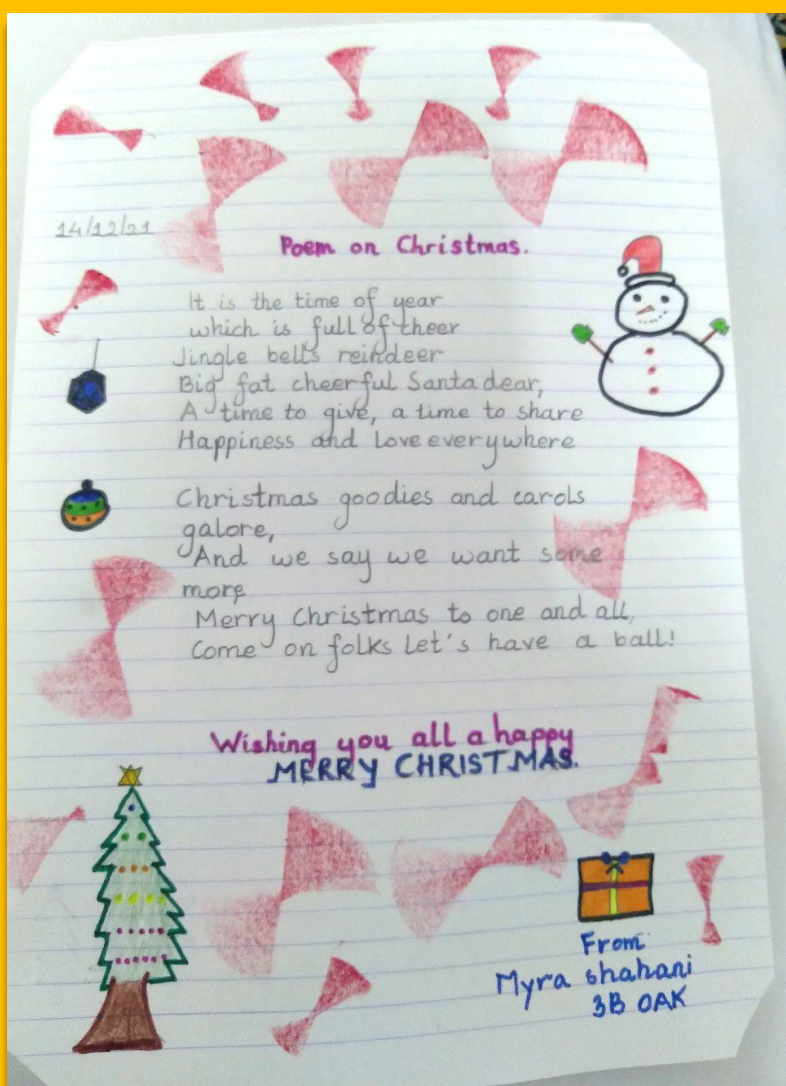 14/12/21
Poem on Christmas.
It is the time of year
which is full of cheer
Jingle bells reindeer
Big fat cheerful Santa dear,
A time to give, a time to share
Happiness and Love everywhere
Christmas goodies and carols
galore,
And we say we want some
more,
Merry Christmas to one and all,
Come on folks Let's have a ball!
Wishing you all a happy
MERRY CHRISTMAS.
From
Myra shahani
3B OAK